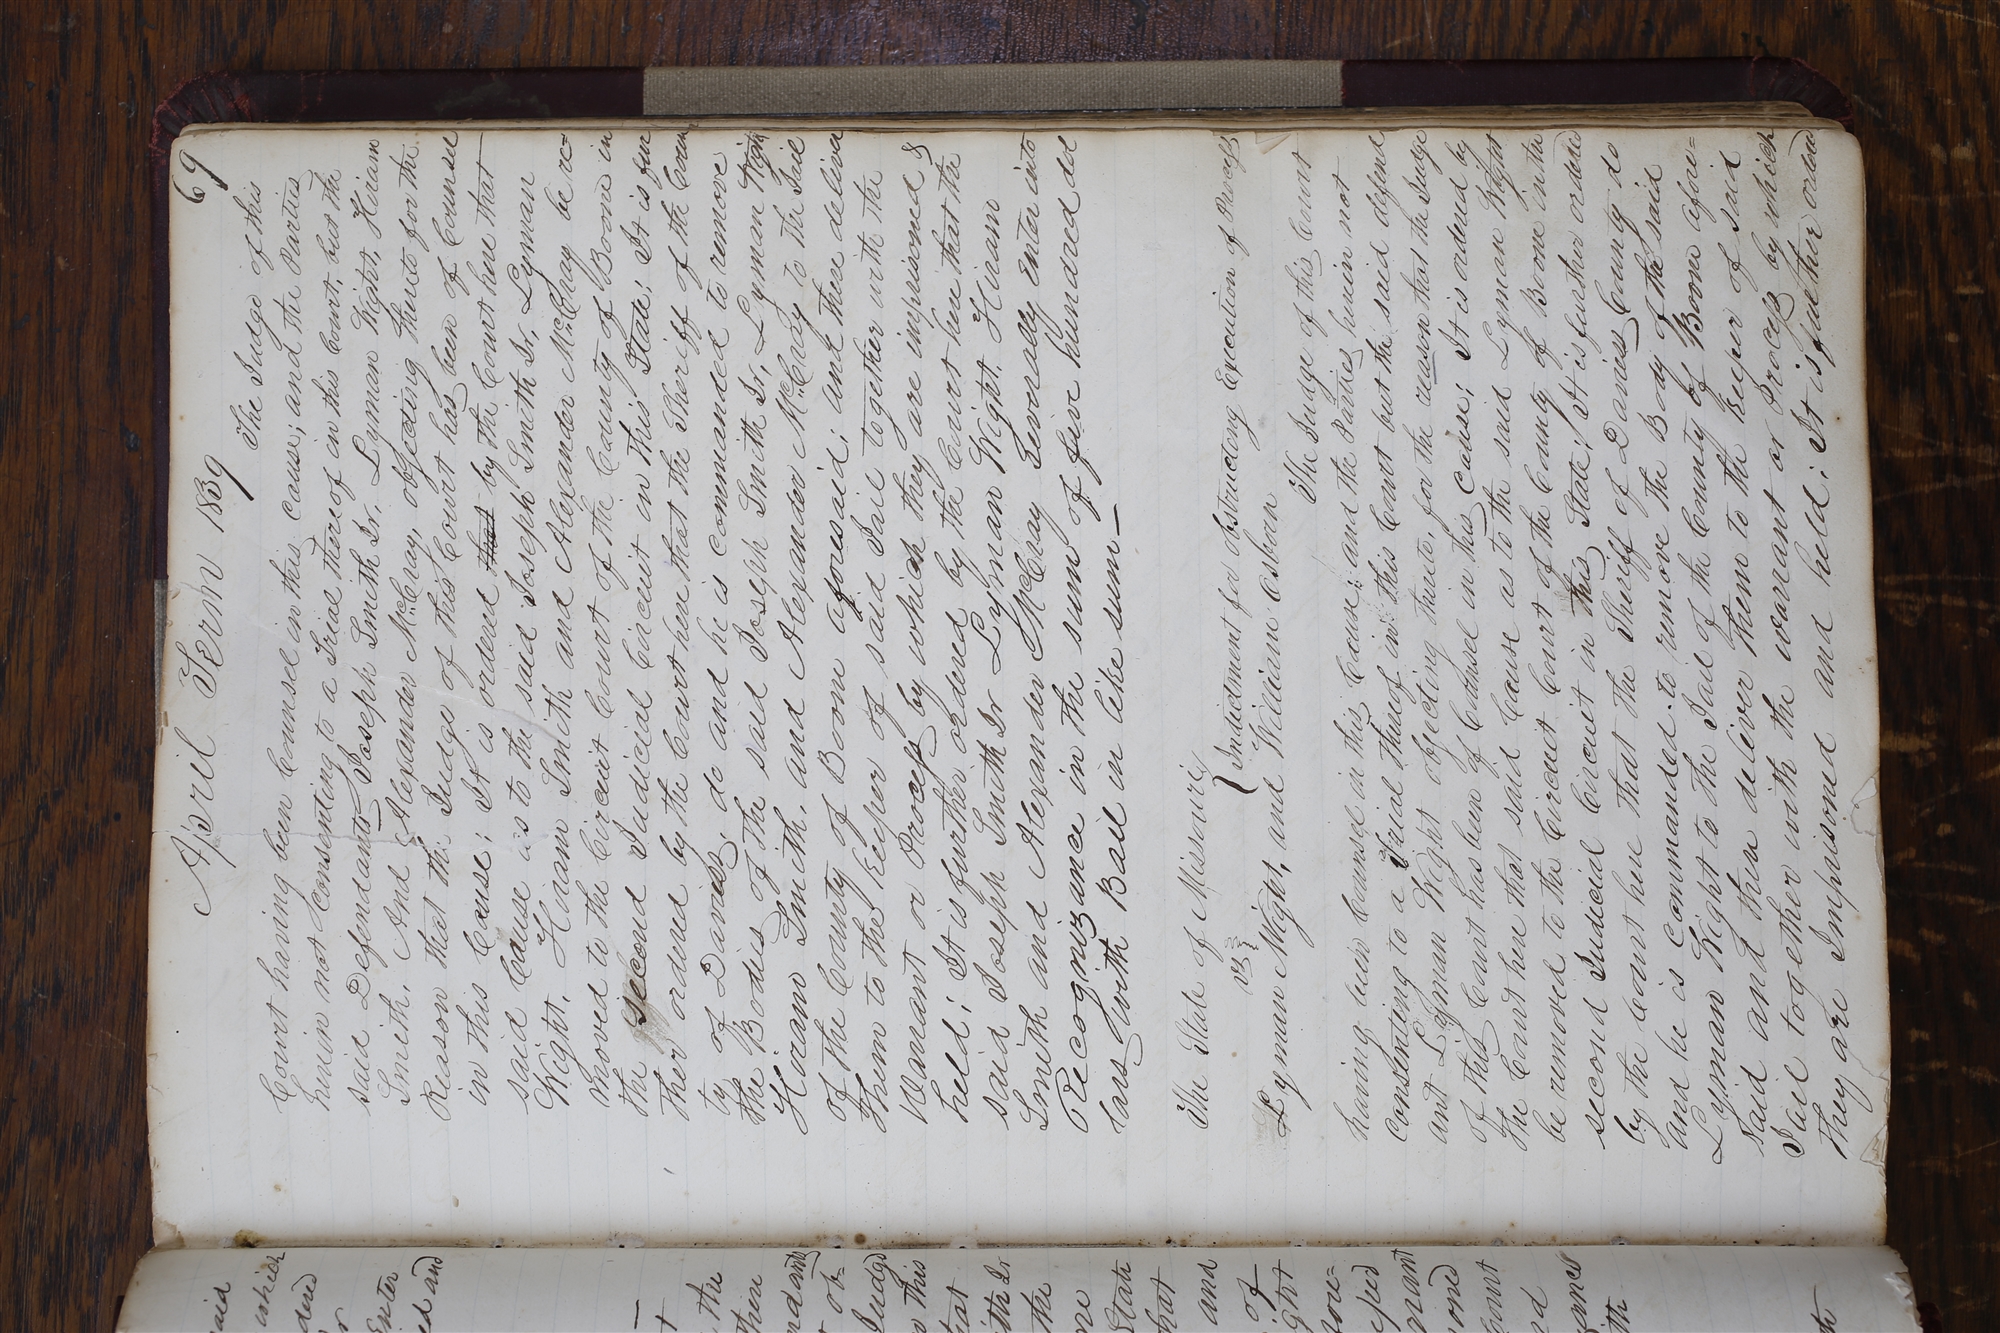 69
April Term 1839
The Judge of this
Court having been Counsel in this cause; and the Parties
herein not Consenting to a Trial thereof in this Court, but the
said Defendants Joseph Smith Jr. Lyman Wight, Hiram
Smith, And Alexander McCray objecting thereto for the
Reason that the Judge of this Court has been of Counsel
in this Cause; It is ordered that by the Court here that
said Cause as to the said Joseph Smith Jr, Lyman
Wight, Hiram Smith and Alexander McCray be re=
moved to the Circuit Court of the County of Boone in
the second Judicial Circuit in this State; It is fur
ther ordered by the Court here that the Sheriff of the Coun
ty of Daviess, do and he is commanded to remove
the Bodies of the said Joseph Smith Jr, Lyman Wight
Hiram Smith, and Alexander McCray to the Jail
of the County of Boon aforesaid; and there deliver
them to the Keeper of said Jail together with the
Warrant or Process by which they are imprisoned &
held; It is further ordered by the Court here that the
said Joseph Smith Jr Lyman Wight. Hiram
Smith and Alexander McCray Severally enter into
Recognizance in the sum of five hundred dol
lars with Bail in like sum—
The State of Missouri,
vs
Lyman Wight, and William Osbon
Indictment for Obstructing Execution of Process
The Judge of this Court
having been Counsel in this Cause; and the Parties herein not
consenting to a Trial thereof in this Court but the said defend
ant Lyman Wight objecting thereto, for the reason that the Judge
of this Court has been of Counsel in this Cause; It is ordered by
the Court here that said Cause as to the said Lyman Wight
be removed to the Circuit Court of the County of Boone in the
second Judicial Circuit in this State; It is further ordered
by the Court here that the Sheriff of Daviess County do
and he is Commanded to remove the Body of the said
Lyman Wight to the Jail of the County of Boon afore=
said and there deliver them to the keeper of said
Jail together with the warrant or Process by which
they are Imprisoned and held; It is further ordered